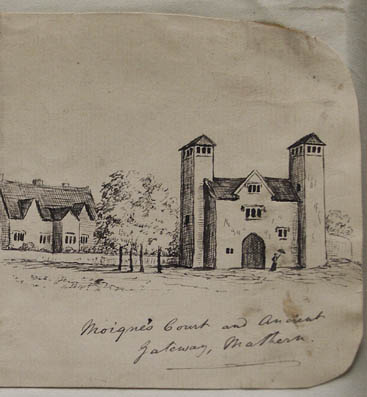 Moigne's Court and Ancient
Gateway, Mathern.